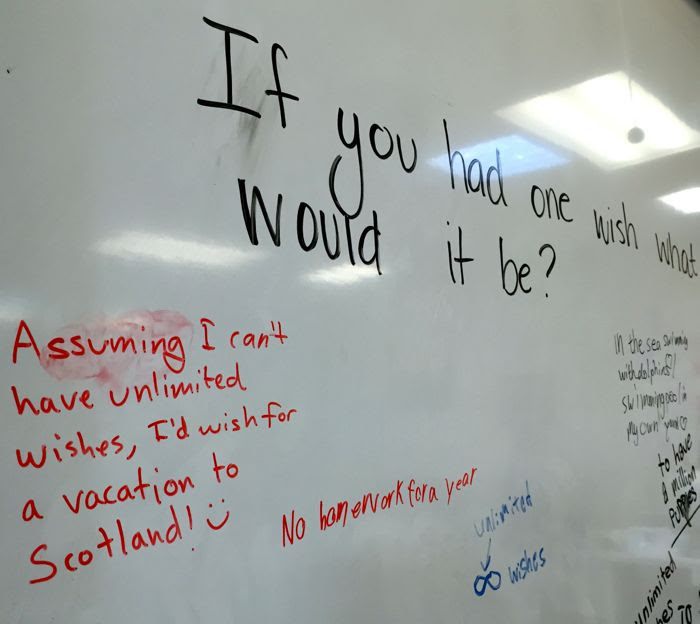 If you had one wish what
would it be?
Assuming I can't
have unlimited
wishes, I'd wish for
a vacation to
Scotland!
No homework for a year
unlimited
∞ wishes
in the sea swimming
with dolphins!/
swimming pool in
my own
to have
a million
puppies
unlimited